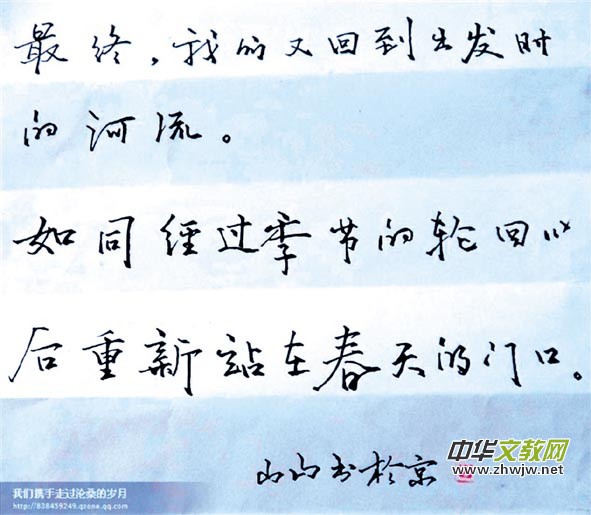 最终，我们又回到出发时
的河流。
如同经过季节的轮回以
后重新站在春天的门口。
山书於京
中华文教网
www.zhwjw.net
我们携手走过沧桑的岁月
http://838459249.qzone.qq.com